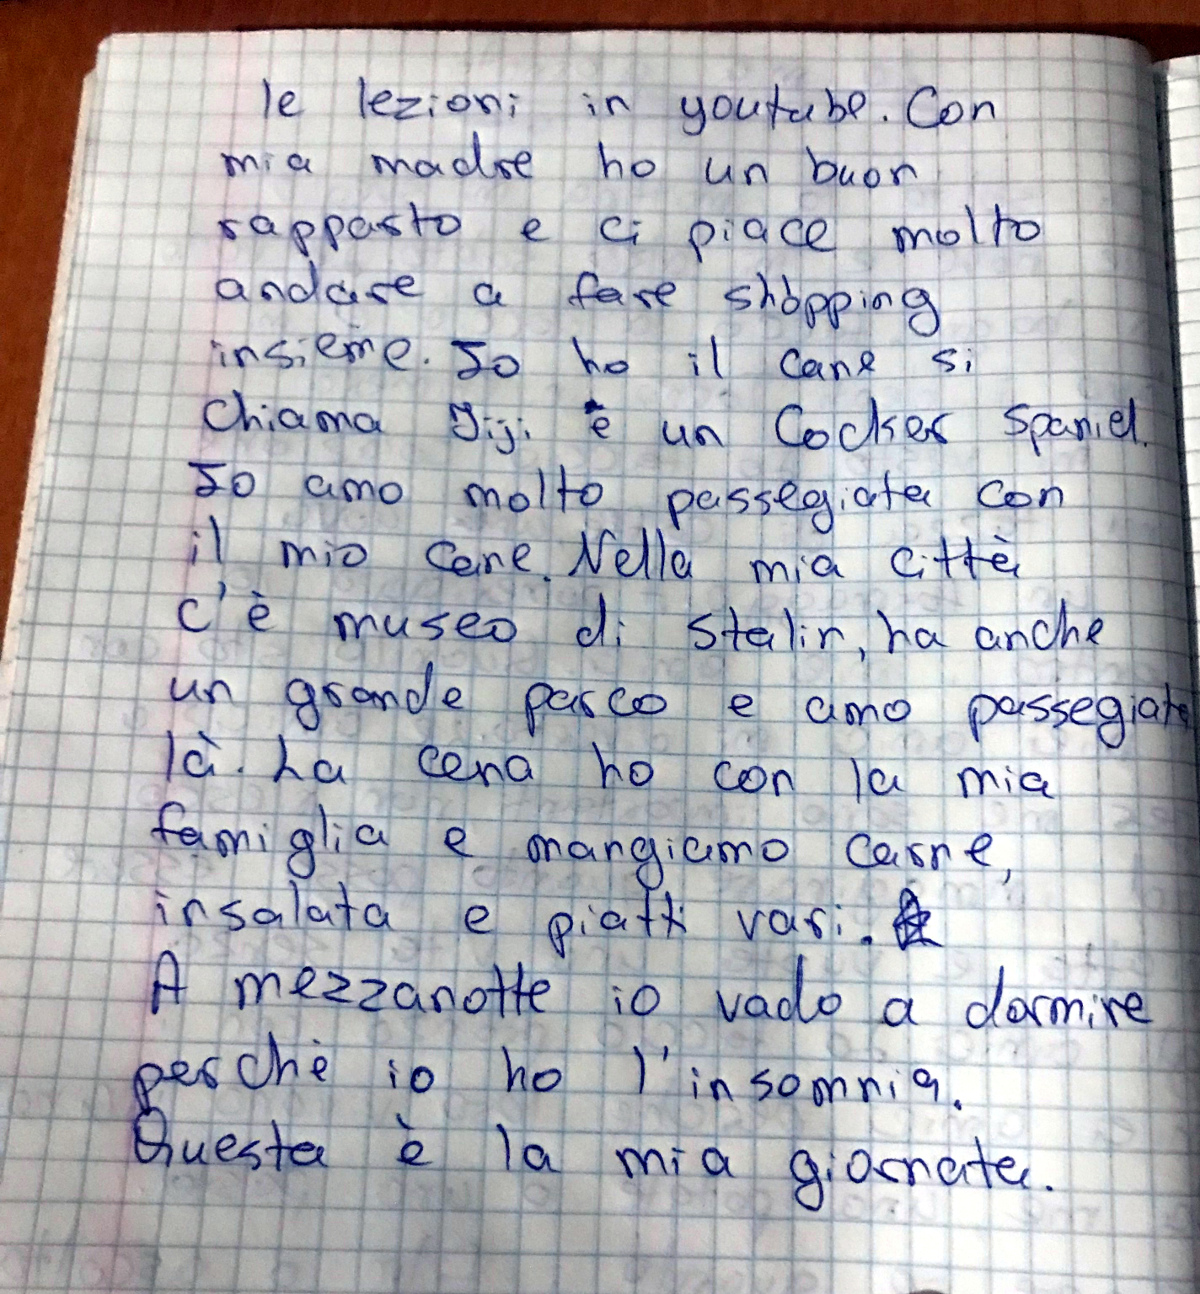 le lezioni in youtube. Con
mia madre ho un buon
rapporto e ci piace molto
andare a fare shopping
insieme. Io ho il cane si
chiama Jiji è un Cocker Spaniel.
Io amo molto passegiata con
il mio cane. Nella mia città
c'è museo di Stalin, ha anche
un grande parco e amo passegiata
là. La cena ho con la mia
famiglia e mangiamo carne,
insalata e piatti vari.
A mezzanotte io vado a dormire
perchè io ho l'insomnia.
Questa è la mia giornata.